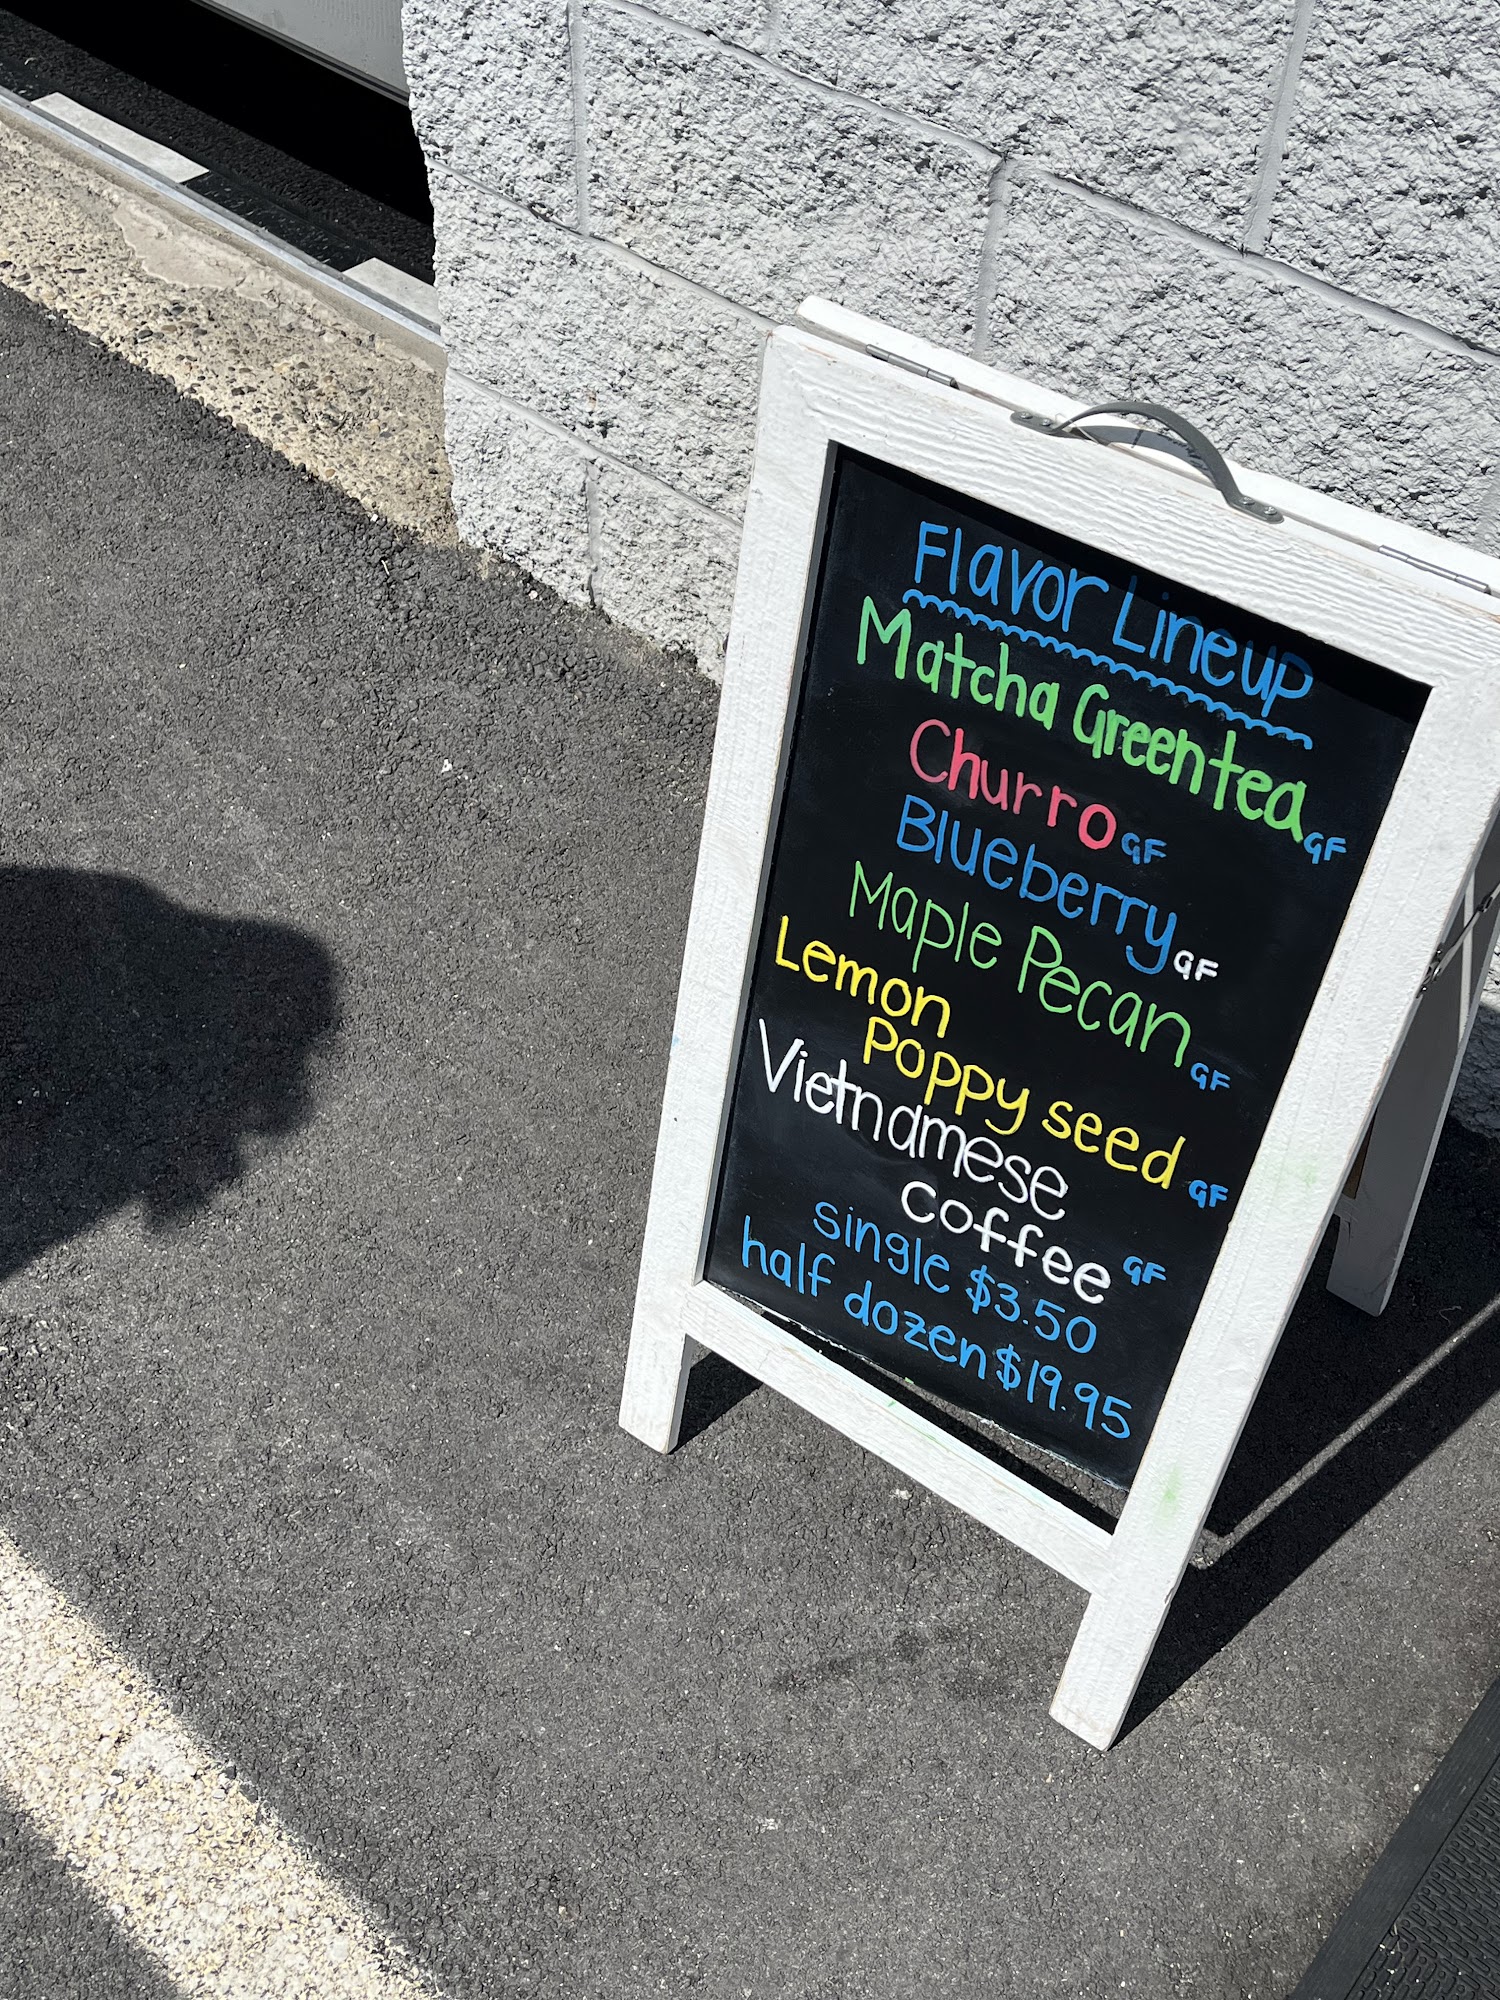 Flavor Lineup
Matcha Greentea GF
Churro GF
Blueberry GF
Maple Pecan GF
Lemon
Poppy seed GF
Vietnamese
Coffee GF
single $3.50
half dozen $19.95